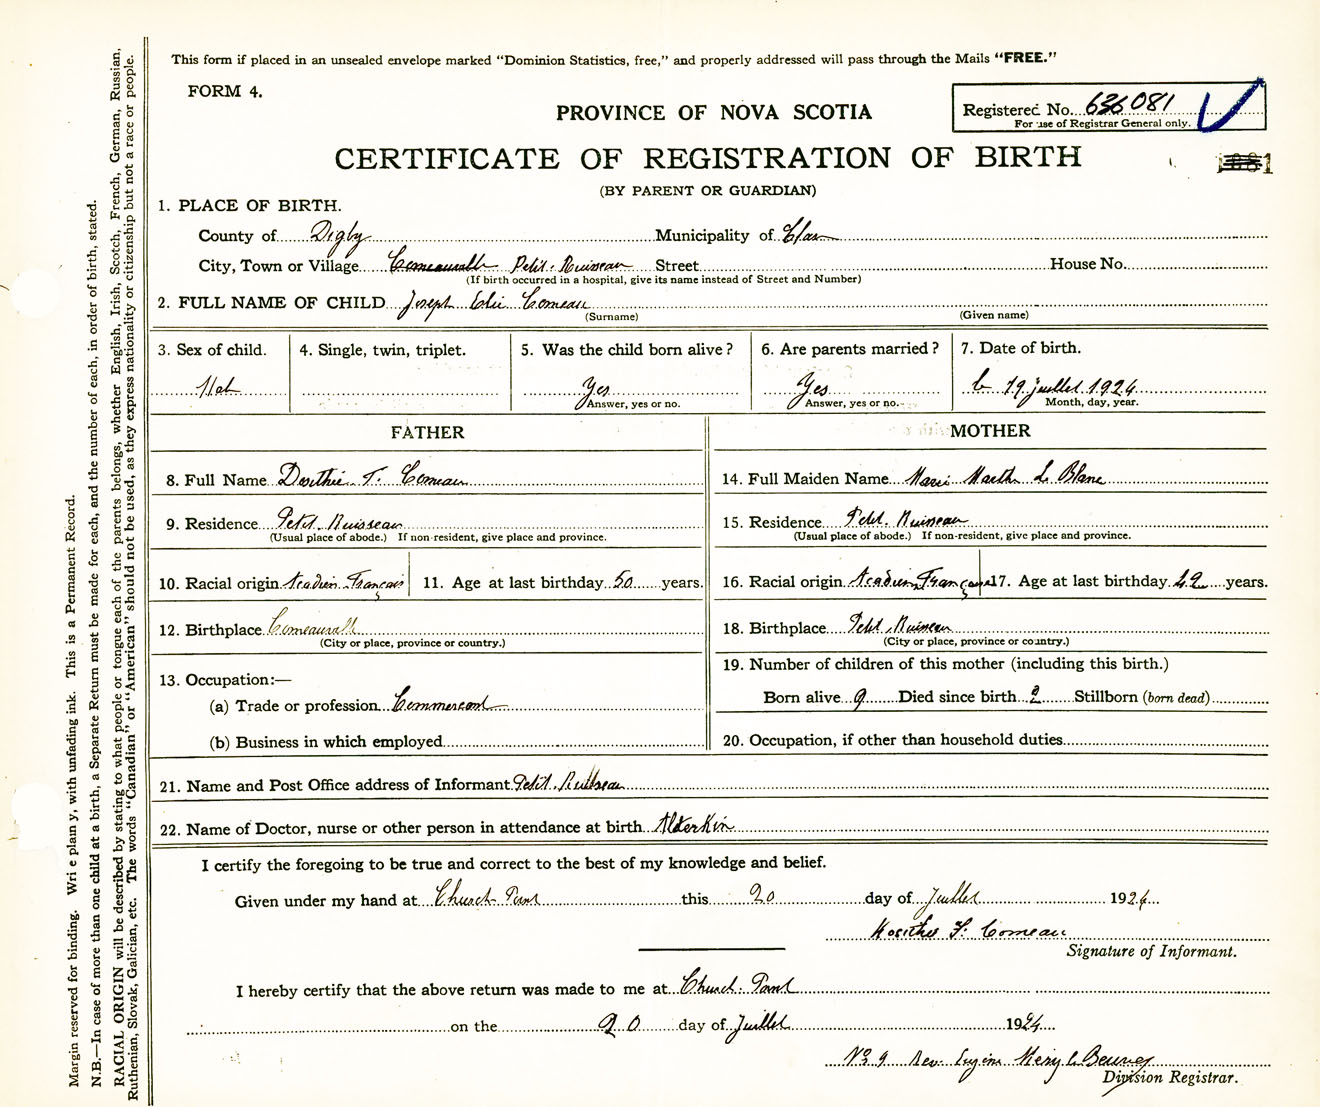 This form if placed in an unsealed envelope marked “Dominion Statistics, free,” and properly addressed will pass through the Mails “FREE.”
FORM 4.
PROVINCE OF NOVA SCOTIA
Registered No. 636081
For use of Registrar General only.
CERTIFICATE OF REGISTRATION OF BIRTH
(BY PARENT OR GUARDIAN)
1. PLACE OF BIRTH.
County of Digby Municipality of Clare
City, Town or Village Comeauville Petit Ruisseau Street House No.
(If birth occurred in a hospital, give its name instead of Street and Number)
2. FULL NAME OF CHILD Joseph Elie Comeau
(Surname) (Given name)
3. Sex of child. 4. Single, twin, triplet. 5. Was the child born alive? 6. Are parents married? 7. Date of birth.
Yes Yes le 19 juillet 1924
Answer, yes or no. Answer, yes or no. Month, day, year.
FATHER MOTHER
8. Full Name Dosithée T. Comeau 14. Full Maiden Name Marie Marthe Le Blanc
9. Residence Petit Ruisseau 15. Residence Petit Ruisseau
(Usual place of abode.) If non-resident, give place and province. (Usual place of abode.) If non-resident, give place and province.
10. Racial origin Acadien Français 11. Age at last birthday 50 years. 16. Racial origin Acadien Française 17. Age at last birthday 42 years.
12. Birthplace Comeauville 18. Birthplace Petit Ruisseau
(City or place, province or country.) (City or place, province or country.)
19. Number of children of this mother (including this birth.)
13. Occupation:—
(a) Trade or profession Commercant Born alive 9 Died since birth 2 Stillborn (born dead)
(b) Business in which employed 20. Occupation, if other than household duties
21. Name and Post Office address of Informant Petit Ruisseau
22. Name of Doctor, nurse or other person in attendance at birth Alderkin
I certify the foregoing to be true and correct to the best of my knowledge and belief.
Given under my hand at Church Point this 20 day of Juillet 1924
Dosithée T. Comeau
Signature of Informant.
I hereby certify that the above return was made to me at Church Point
on the 20 day of Juillet 1924
No 9 Rev. Eugène
Division Registrar.
Margin reserved for binding. Wri e plain y, with unfading ink. This is a Permanent Record.
N.B.—In case of more than one child at a birth, a Separate Return must be made for each, and the number of each, in order of birth, stated.
RACIAL ORIGIN will be described by stating to what people or tongue each of the parents belongs, whether English, Irish, Scotch, French, German, Russian,
Ruthenian, Slovak, Galician, etc. The words “Canadian” or “American” should not be used, as they express nationality or citizenship but not a race or people.